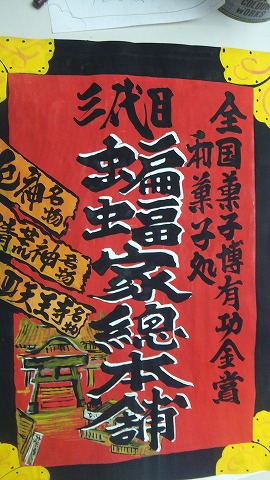 全国菓子博有功金賞
和菓子処
三代目
蝙蝠家總本舗
神名物
清荒神名物
四天王寺名物